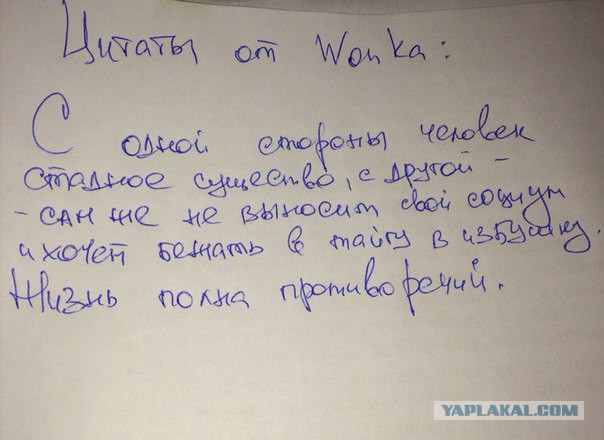 Цитаты от Wonka:
С одной стороны человек
стадное существо, с другой -
- сам же не выносит свой социум
и хочет бежать в тайгу в избушку.
Жизнь полна противоречий.
YAPLAKAL.COM